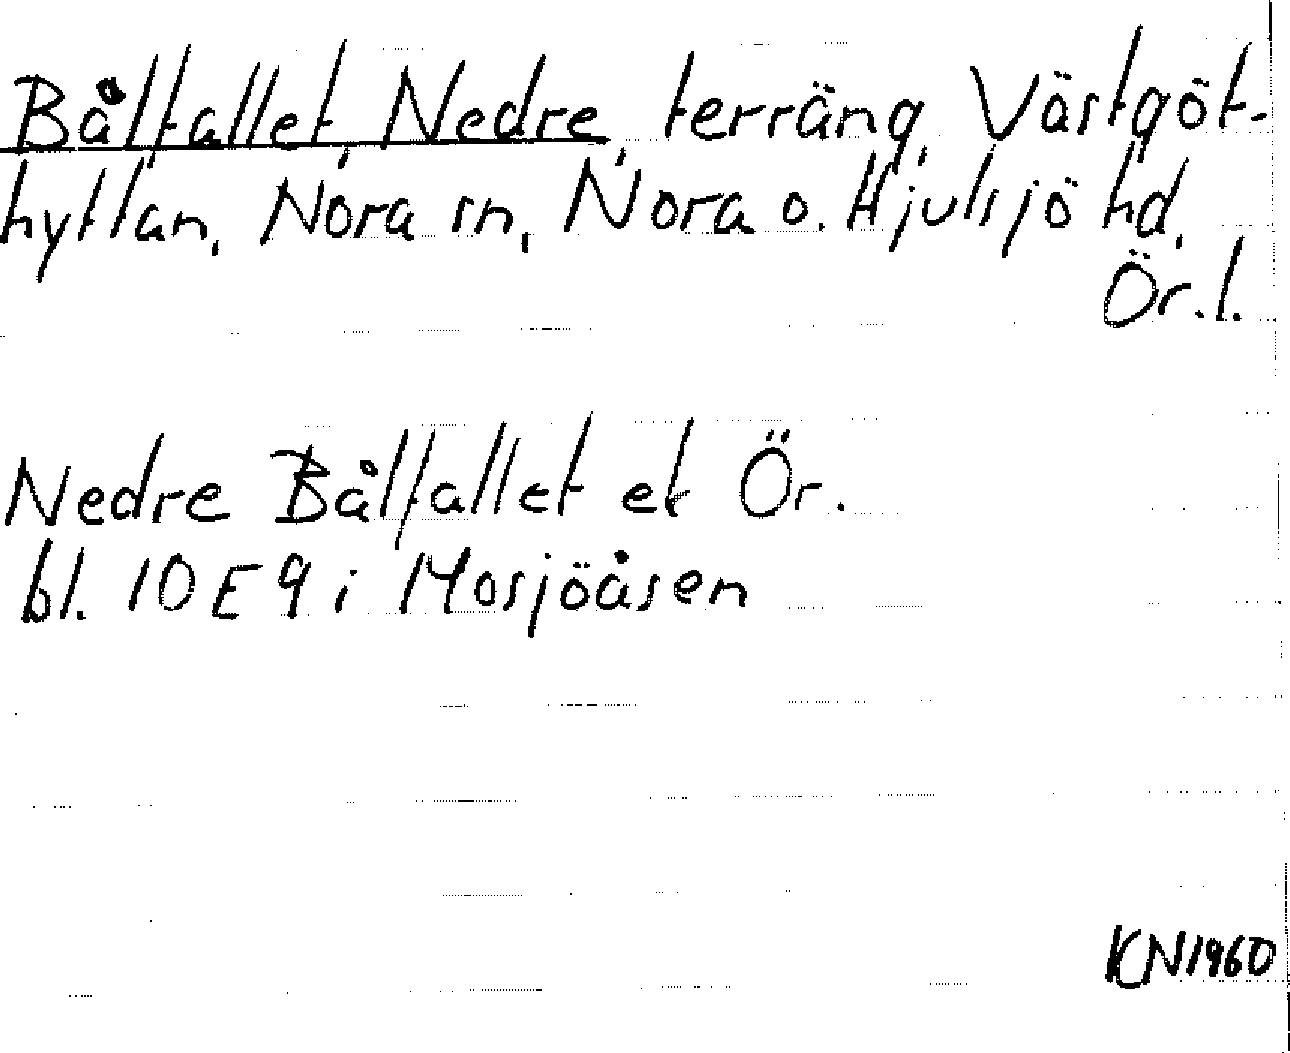 Bålfallet, Nedre, terräng, Västgöt-
hyttan, Nora sn, Nora o. Hjulsjö hd,
Ör. l.
Nedre Bålfallet et Ör.
bl. 10E9 i Mosjöåsen
KN1960